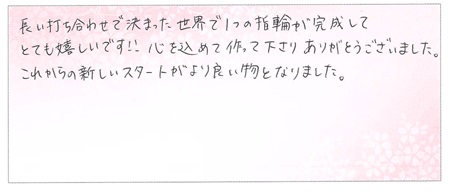 長い打ち合わせで決まった世界で1つの指輪が完成して
とても嬉しいです!! 心を込めて作って下さりありがとうございました。
これからの新しいスタートがより良い物となりました。